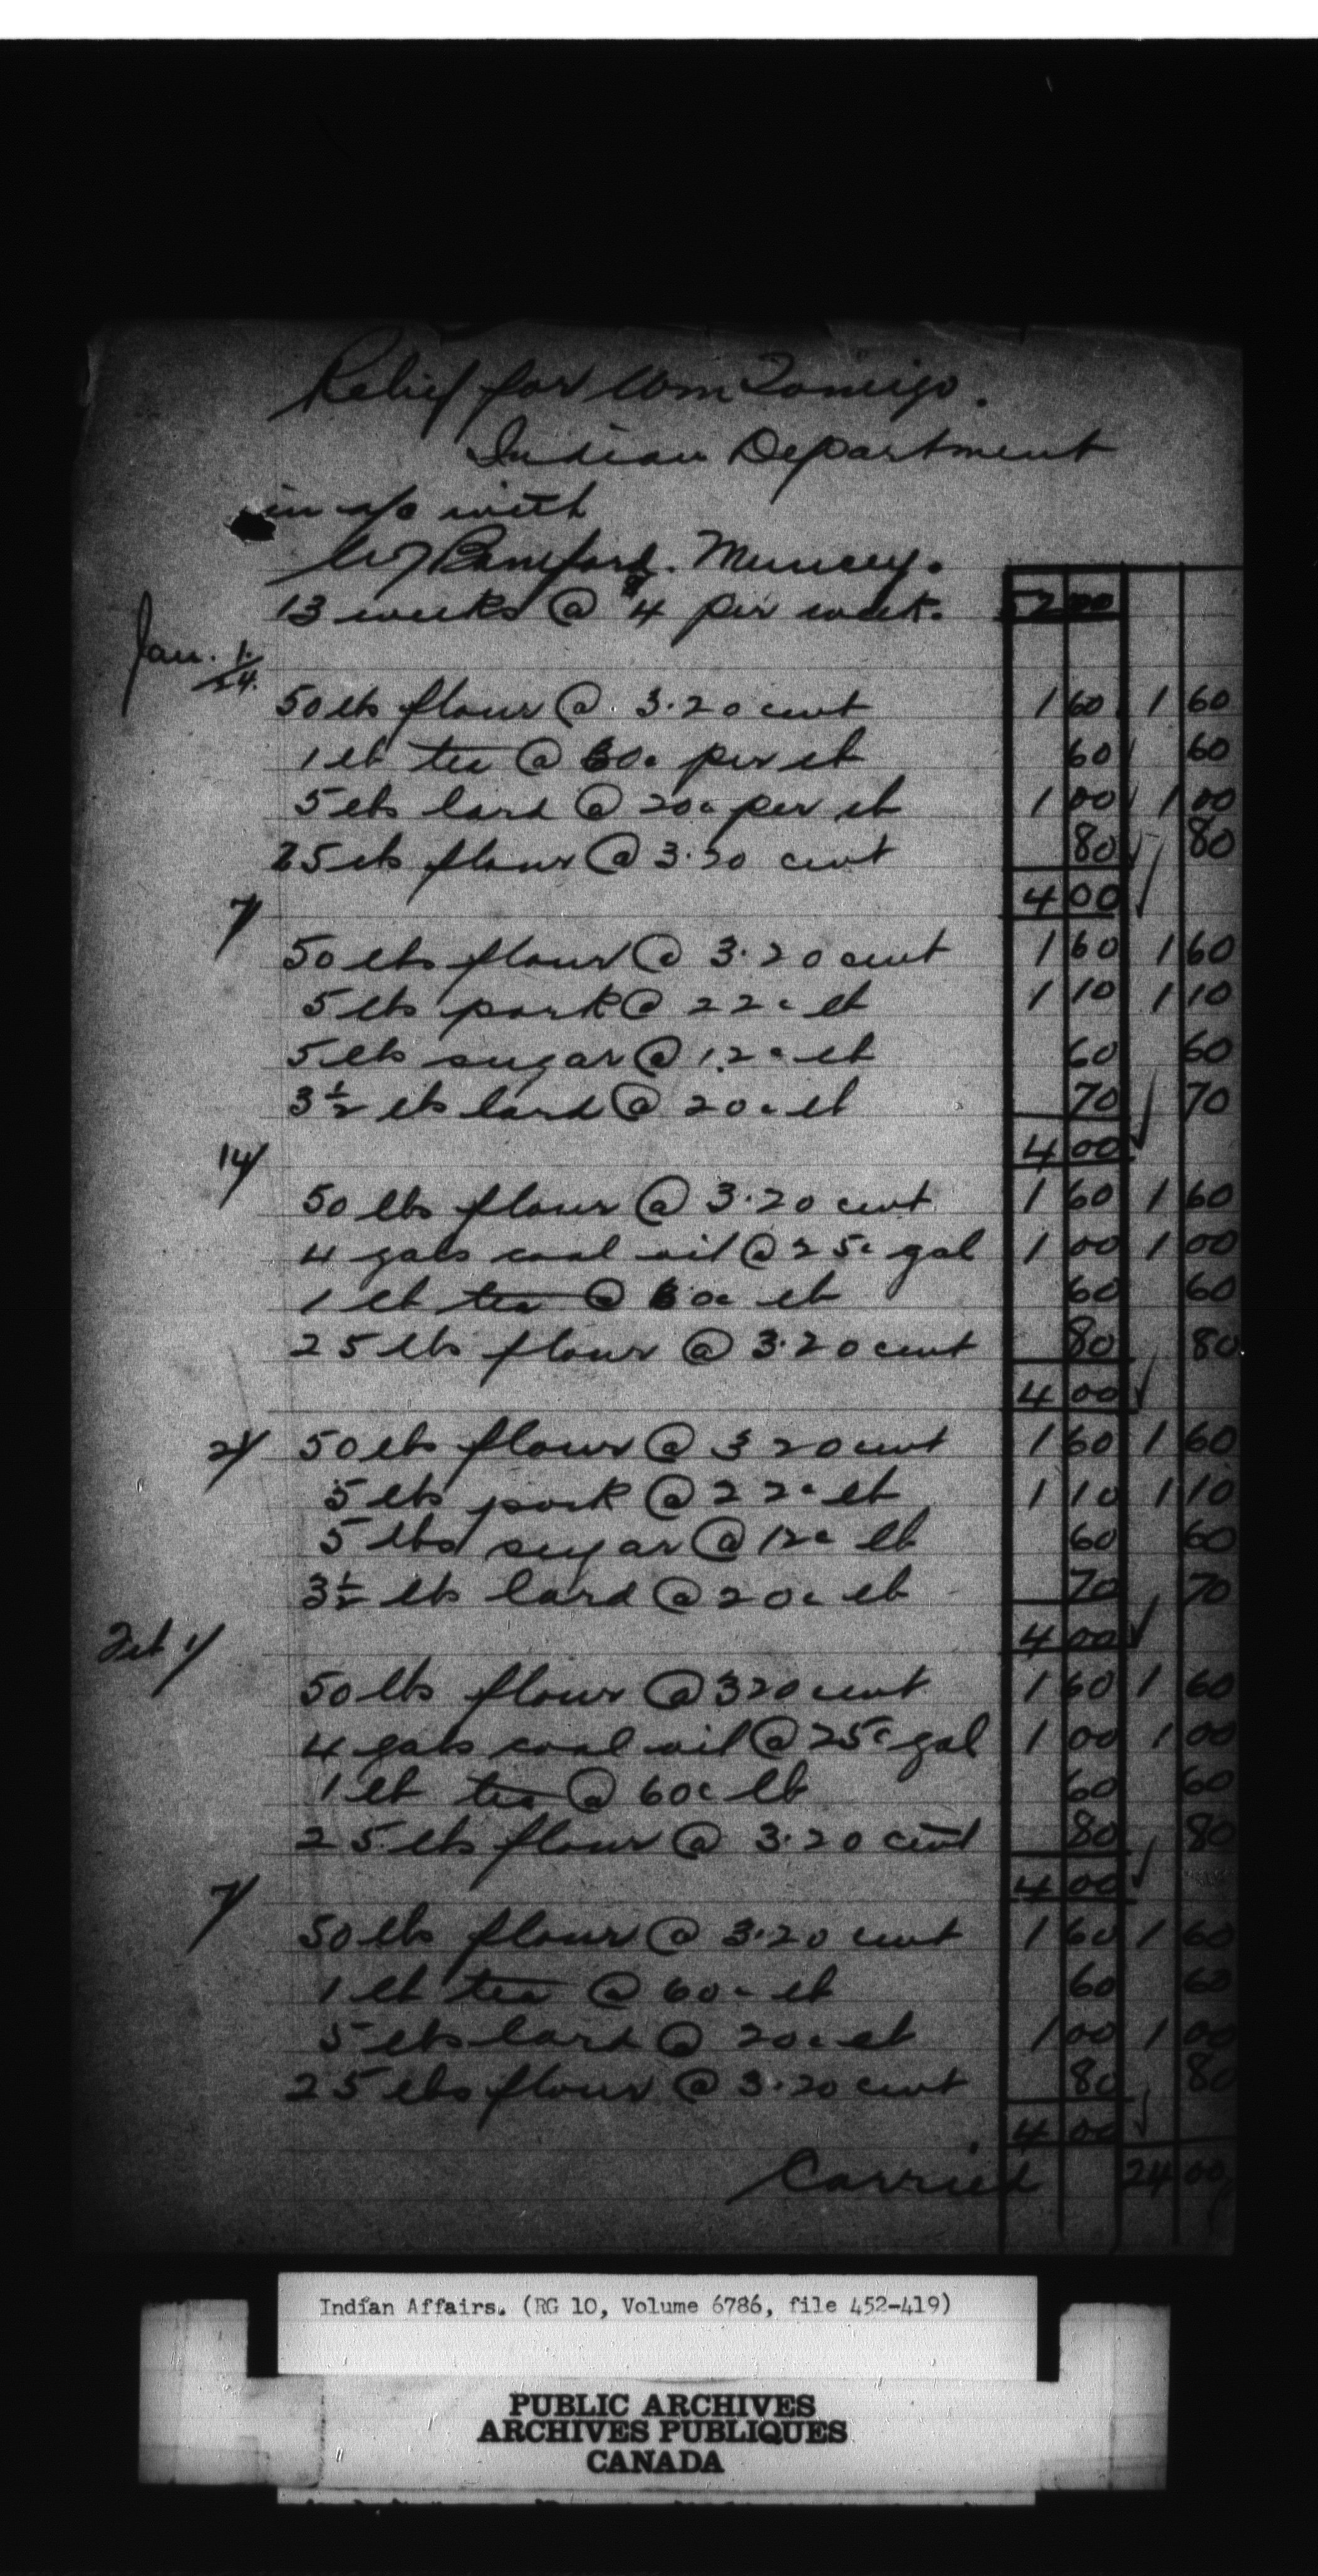 Relief for Wm Tomigo.
Indian Department
in a/c with
W J Bamford. Muncey.
13 weeks @ $4 per week. 52 00
Jan. 1/24.
50 lbs flour @ 3.20 cwt 1 60 1 60
1 lb tea @ 60c per lb 60 60
5 lbs lard @ 20c per lb 1 00 1 00
25 lbs flour @ 3.20 cwt 80 80
4 00
7/
50 lbs flour @ 3.20 cwt 1 60 1 60
5 lbs pork @ 22c lb 1 10 1 10
5 lbs sugar @ 12c lb 60 60
3 1/2 lbs lard @ 20c lb 70 70
4 00
14/
50 lbs flour @ 3.20 cwt 1 60 1 60
4 gals coal oil @ 25c gal 1 00 1 00
1 lb tea @ 60c lb 60 60
25 lbs flour @ 3.20 cwt 80 80
4 00
21/ 50 lbs flour @ 3 20 cwt 1 60 1 60
5 lbs pork @ 22c lb 1 10 1 10
5 lbs sugar @ 12c lb 60 60
3 1/2 lbs lard @ 20c lb 70 70
4 00
Feb 1/
50 lbs flour @ 3 20 cwt 1 60 1 60
4 gals coal oil @ 25c gal 1 00 1 00
1 lb tea @ 60c lb 60 60
25 lbs flour @ 3.20 cwt 80 80
4 00
7/
50 lbs flour @ 3.20 cwt 1 60 1 60
1 lb tea @ 60c lb 60 60
5 lbs lard @ 20c lb 1 00 1 00
25 lbs flour @ 3.20 cwt 80 80
4 00
Carried 24 00
Indian Affairs. (RG 10, Volume 6786, file 452-419)
PUBLIC ARCHIVES
ARCHIVES PUBLIQUES
CANADA